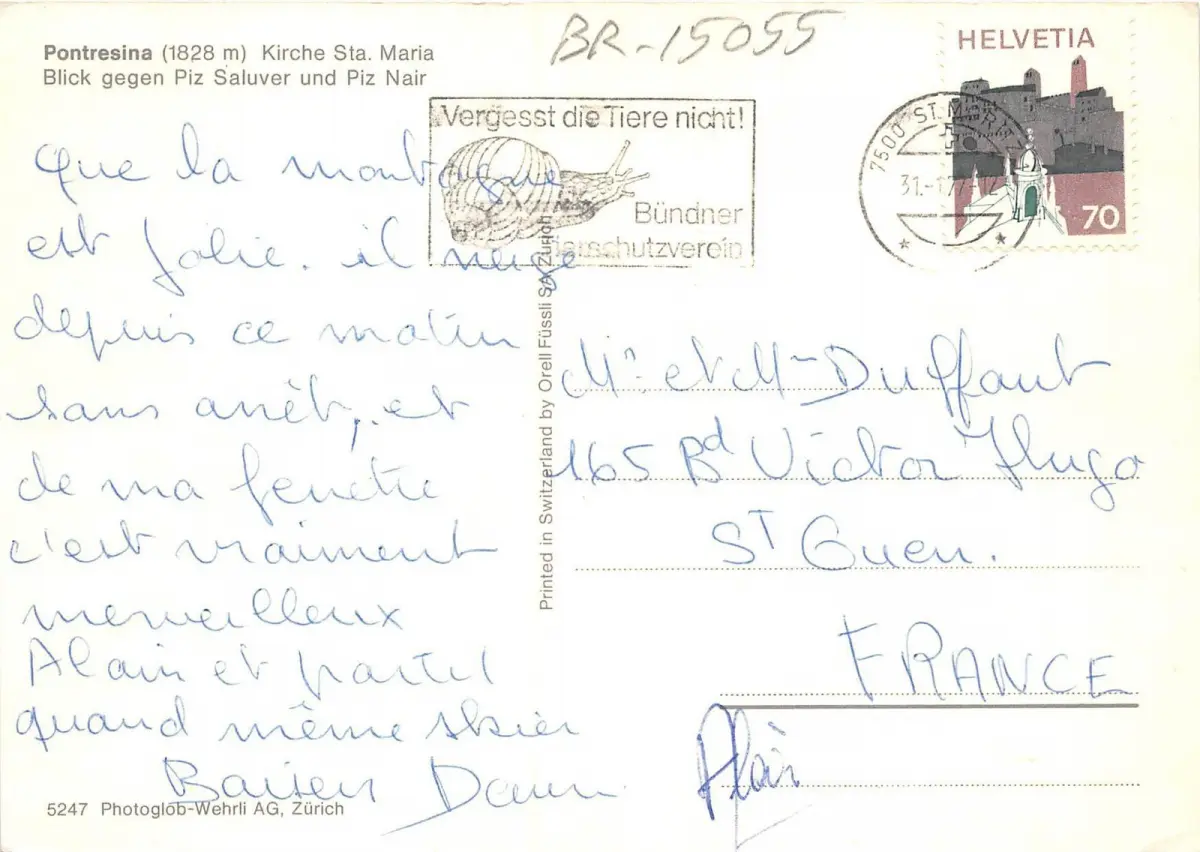 Pontresina (1828 m) Kirche Sta. Maria
Blick gegen Piz Saluver und Piz Nair
BR-15055
Vergesst die Tiere nicht!
Bündner
Tierschutzverein
HELVETIA
70
7500 ST. MORITZ
Que la montagne
est jolie. il neige
depuis ce matin
sans arrêt, et
de ma fenêtre
c'est vraiment
merveilleux
Alain est partit
quand même skier
Baisers
Mr. et Mme Duffaut
165 Bd Victor Hugo
ST Ouen.
FRANCE
Alain
Printed in Switzerland by Orell Füssli SA, Zürich
5247 Photoglob-Wehrli AG, Zürich